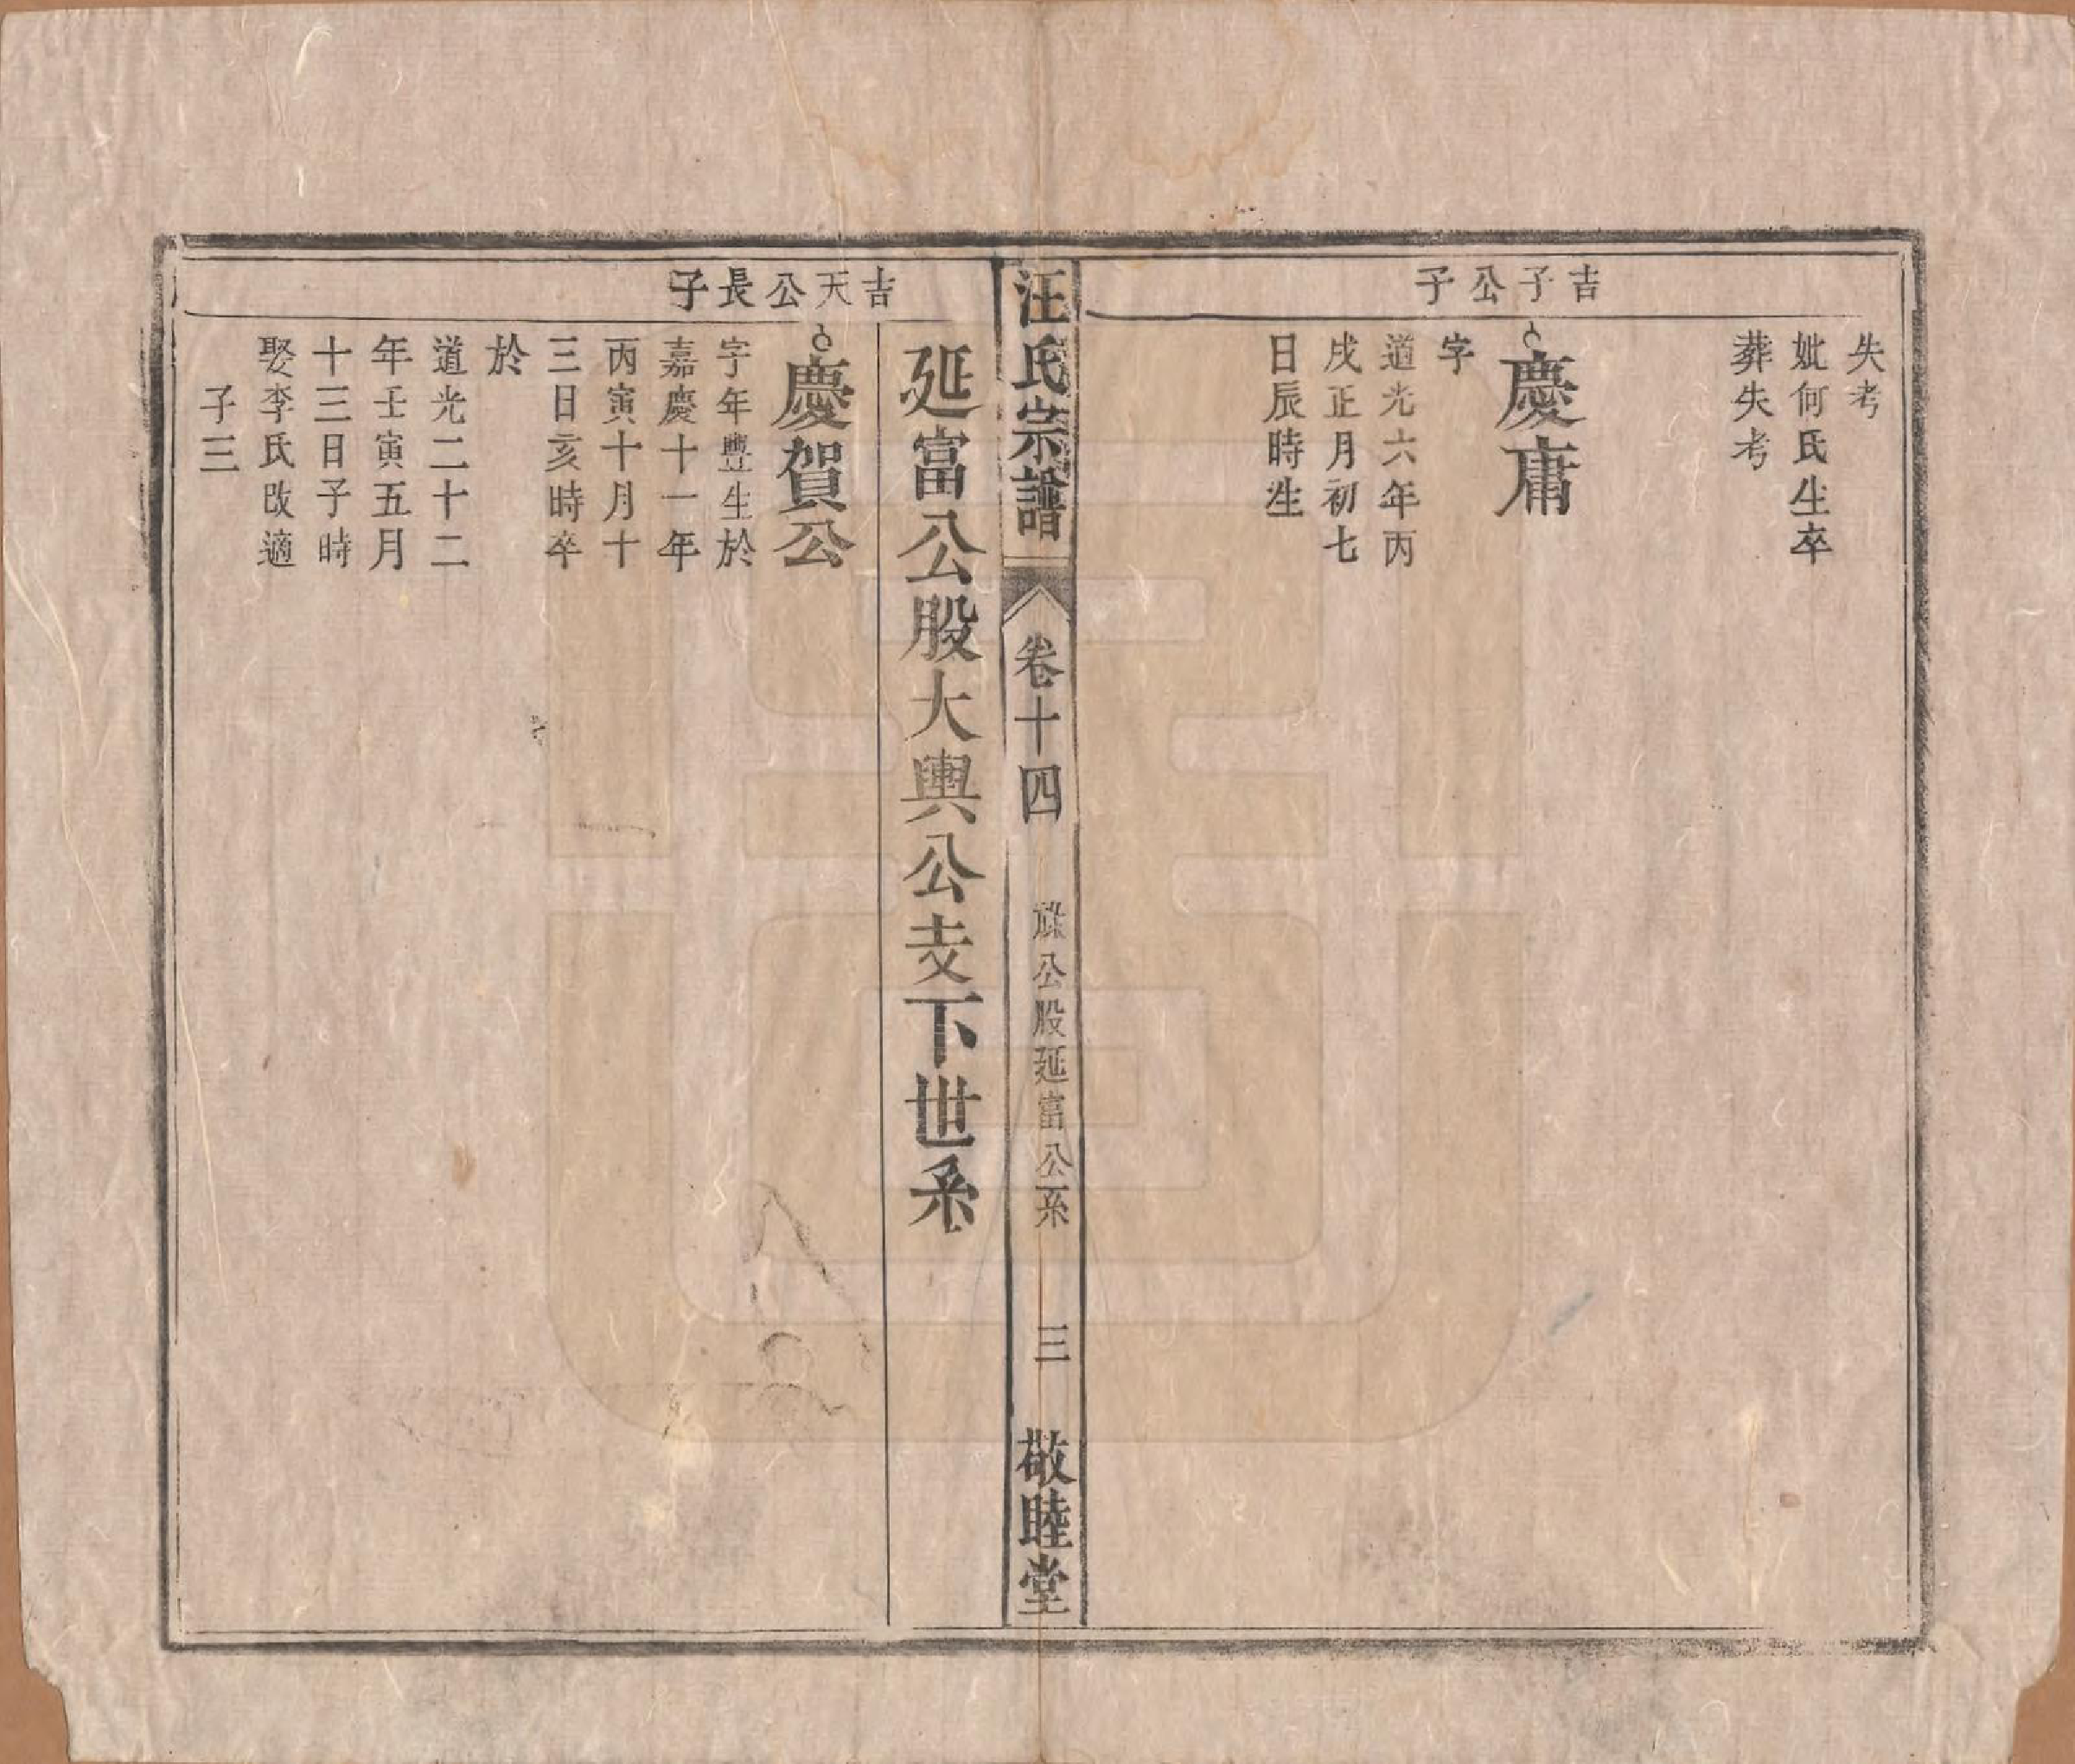 失考
妣何氏生卒
葬失考
吉子公子
慶庸
字
道光六年丙
戌正月初七
日辰時生
汪氏宗譜
卷十四
公股延富公系
三
敬睦堂
延富公股大輿公支下世系
吉天公長子
慶賀公
字年豐生於
嘉慶十一年
丙寅十月十
三日亥時卒
於
道光二十二
年壬寅五月
十三日子時
娶李氏改適
子三